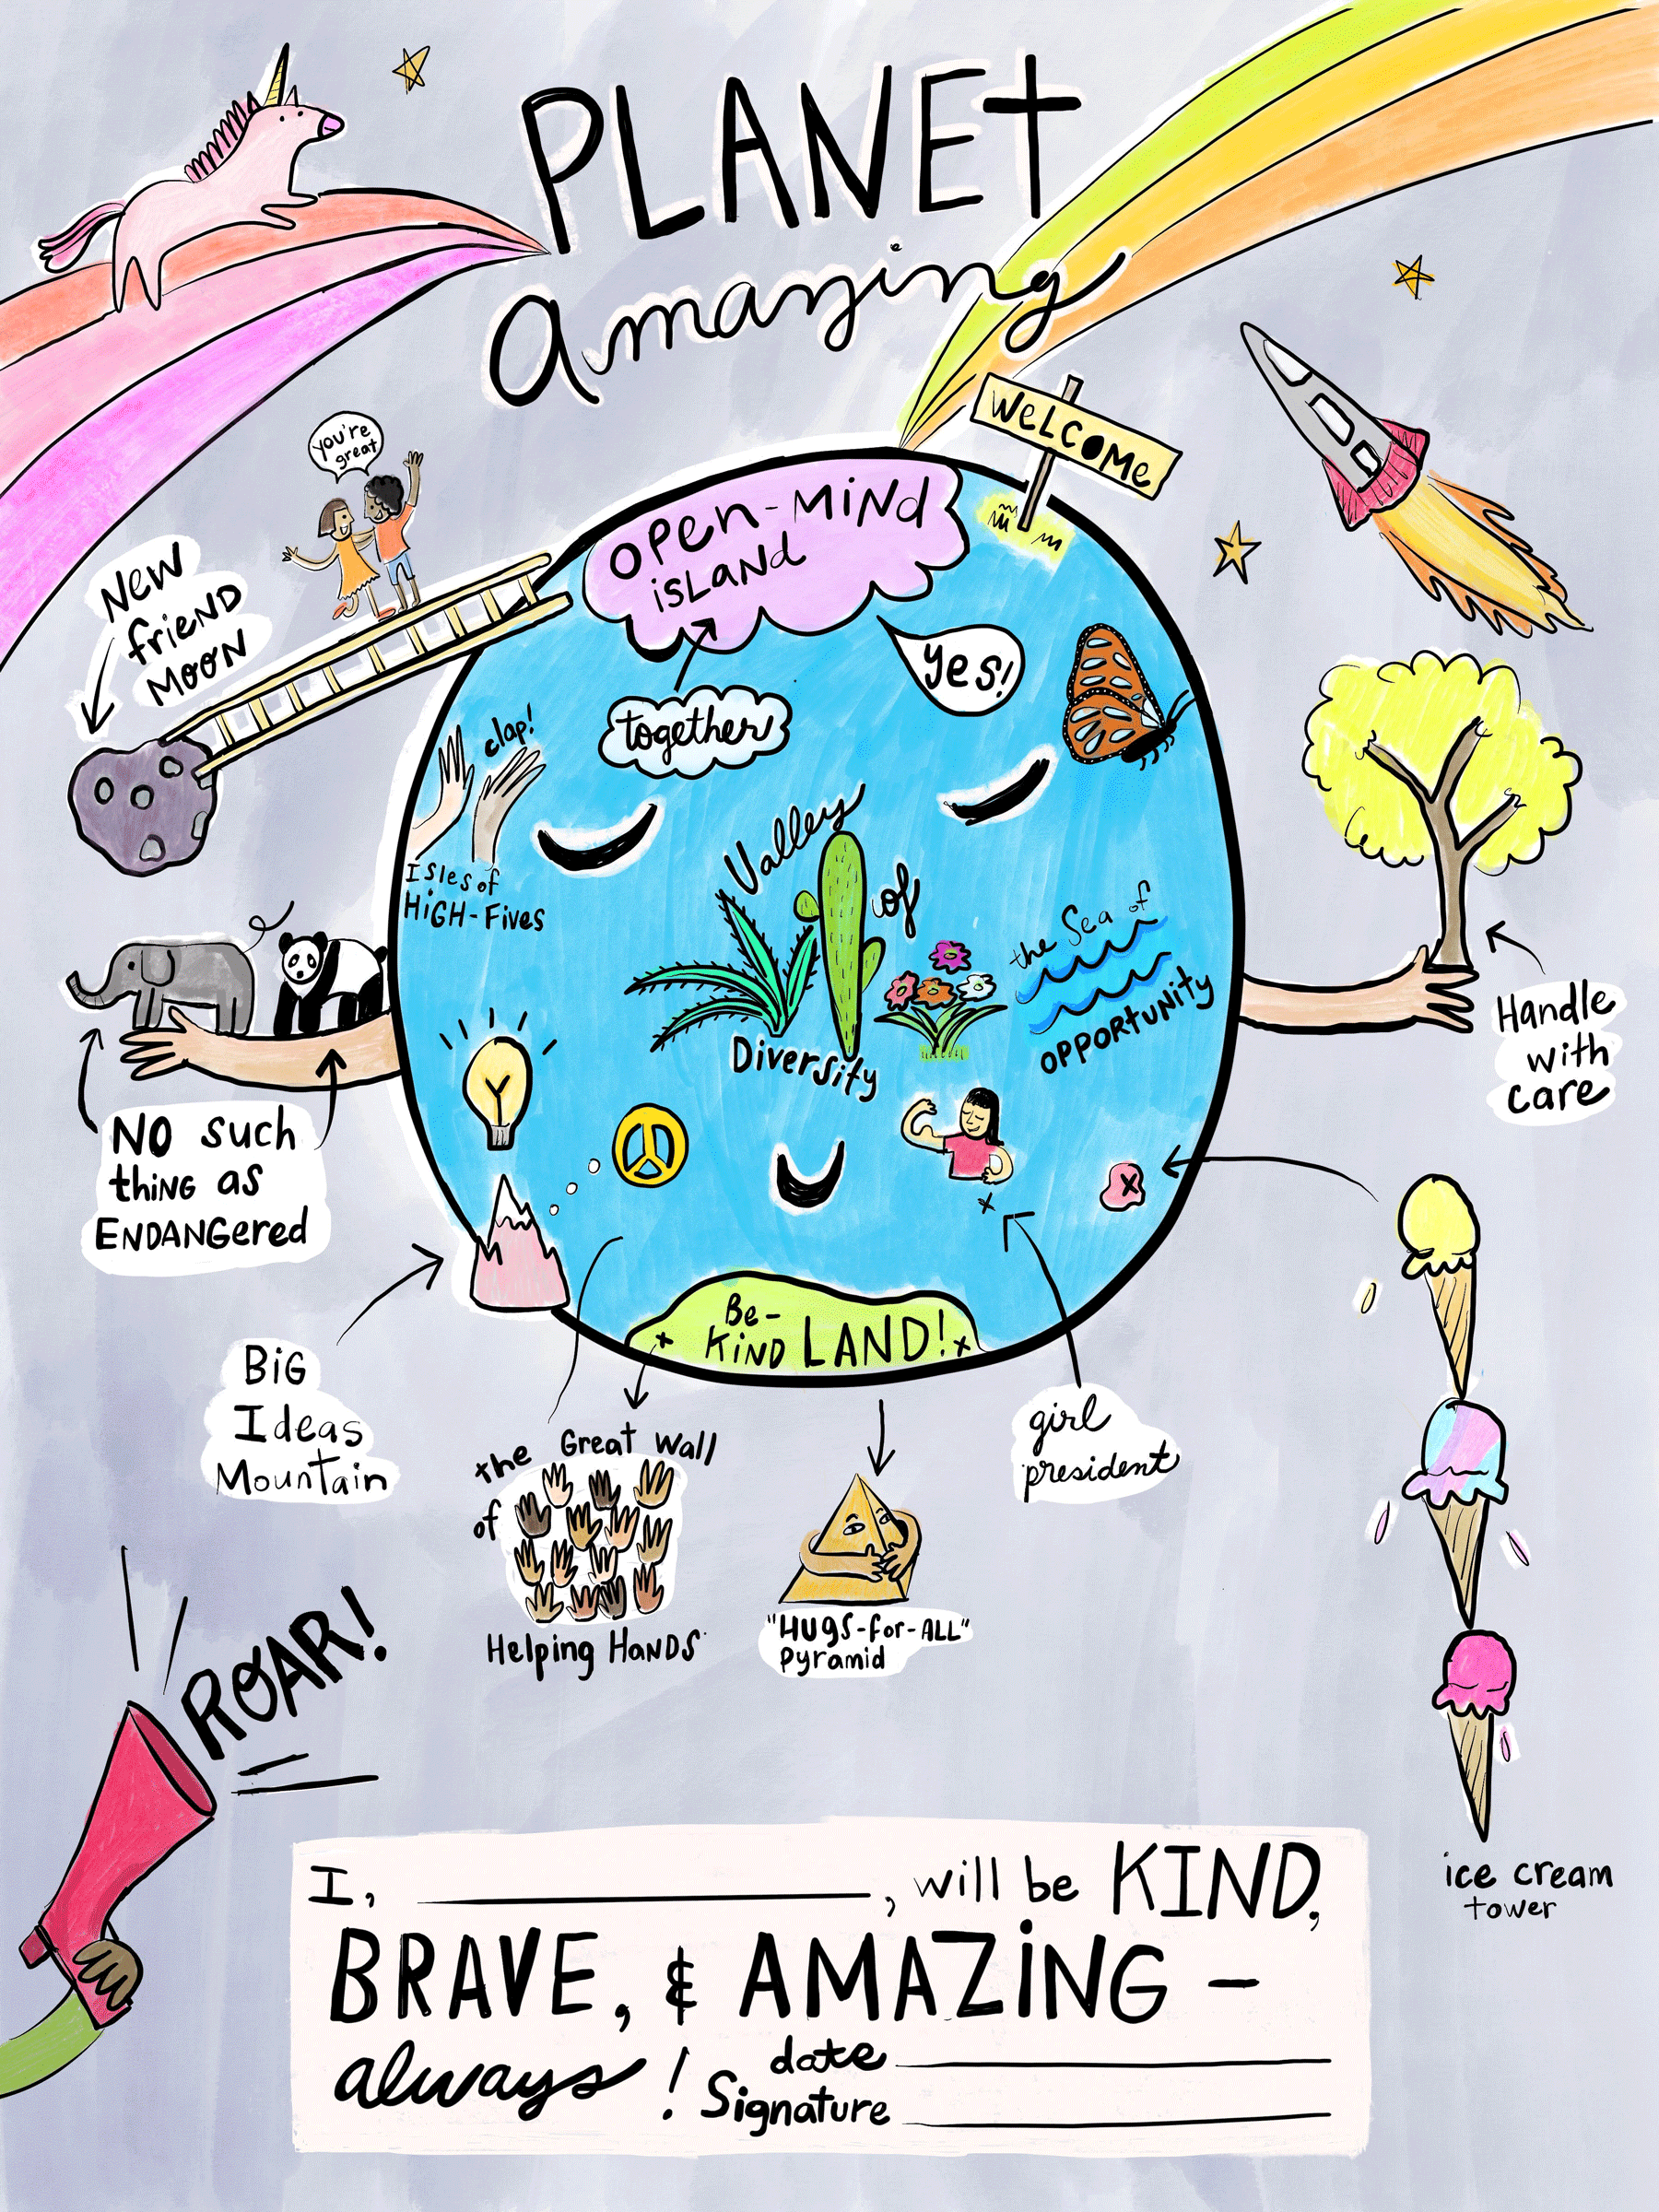 PLANET
amazing
WELCOMe
you're
great
OPeN-MiNd
isLaNd
New
frieND
MOON
yes!
together
clap!
Isles of
HiGH-Fives
Valley
of
Diversity
the Sea of
OPPORtUNity
Handle
with
care
NO such
thiNG as
ENDANGered
BiG
Ideas
Mountain
Be-
KiND LAND!
the Great Wall
of
Helping HaNDS
"HUgS-for-ALL"
Pyramid
girl
president
ROAR!
ice cream
tower
I, , will be KIND,
BRAVE, & AMAZiNG –
always!
date
Signature